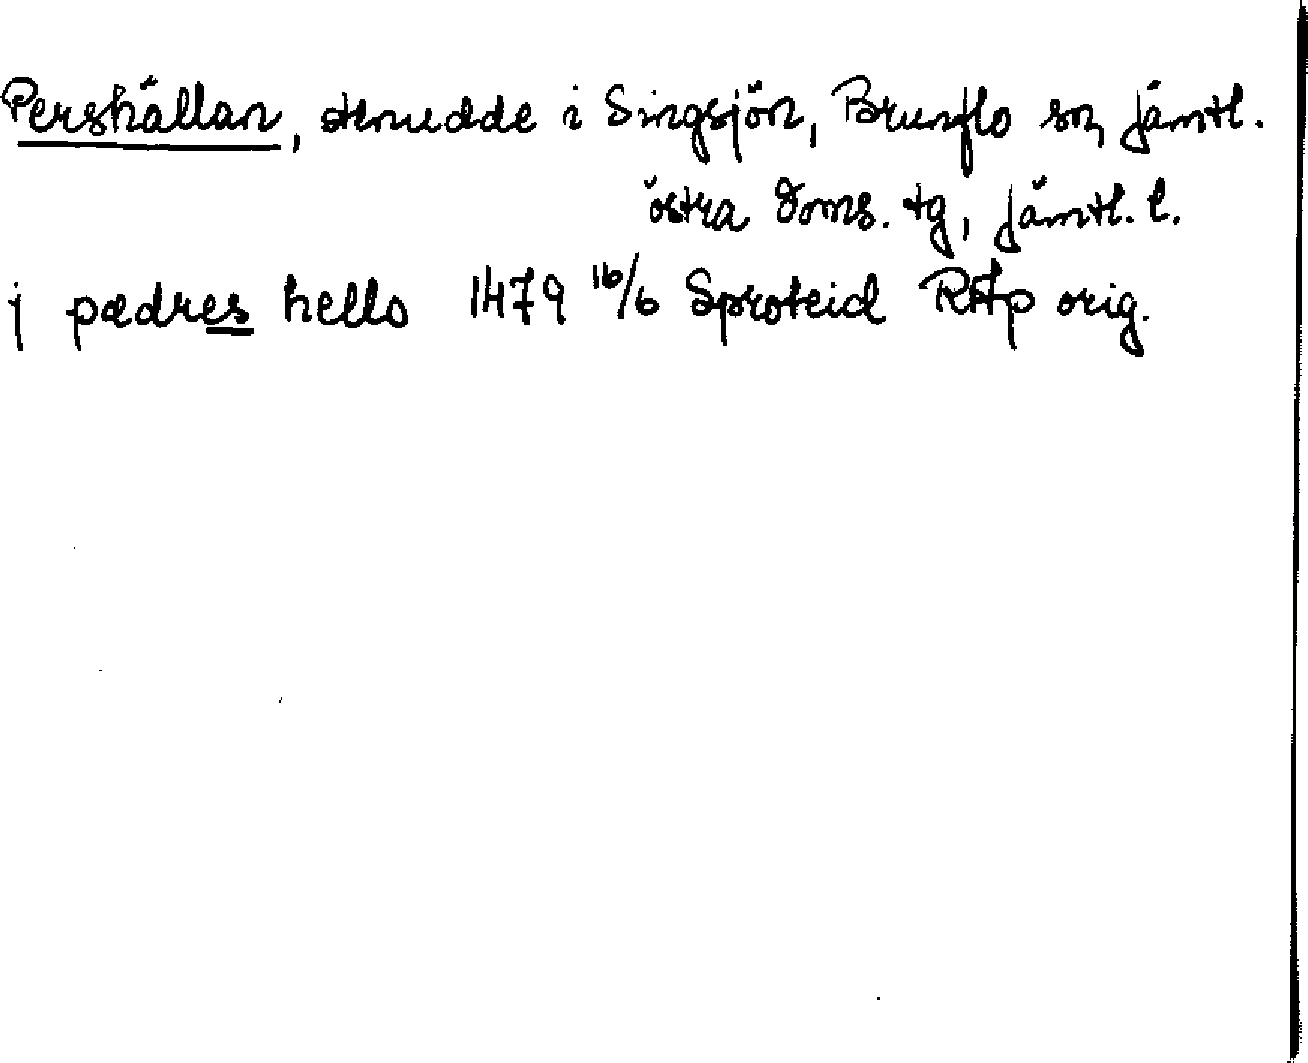 Pershällan, stenudde i Singsjön, Brunflo sn, Jämtl.
östra doms. tg, Jämtl. l.
j pædres hello 1479 16/6 Sproteid RAp orig.